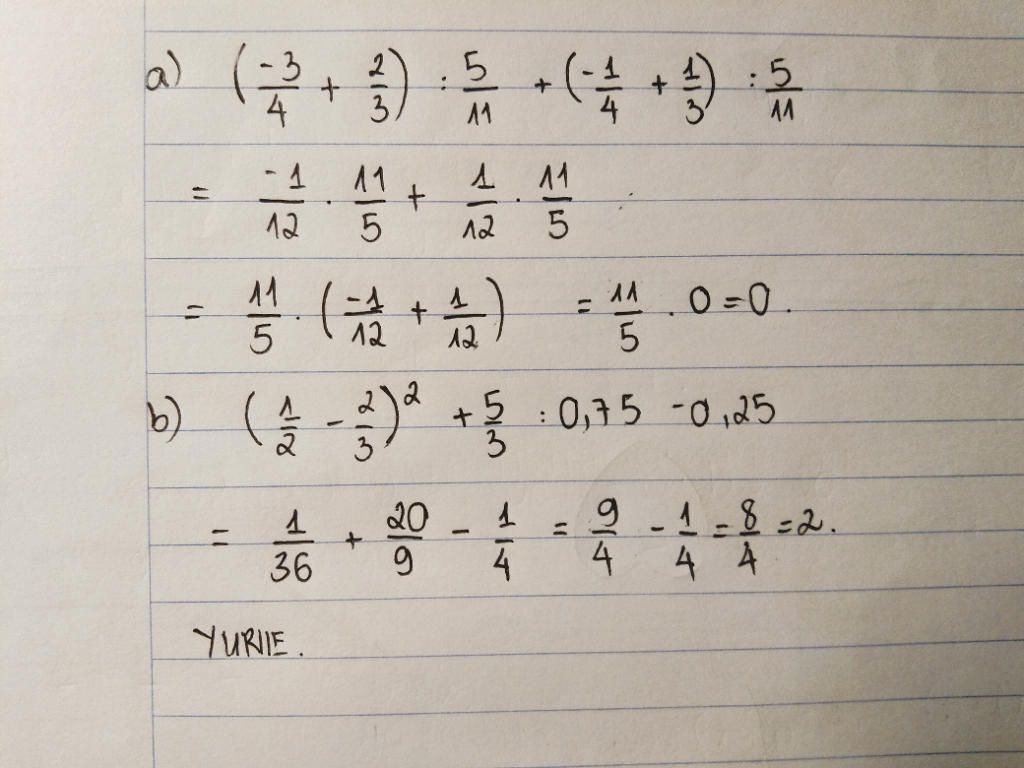 a) (-3/4 + 2/3) : 5/11 + (-1/4 + 1/3) : 5/11
= -1/12 . 11/5 + 1/12 . 11/5
= 11/5 . (-1/12 + 1/12) = 11/5 . 0 = 0.
b) (1/2 - 2/3)² + 5/3 : 0,75 - 0,25
= 1/36 + 20/9 - 1/4 = 9/4 - 1/4 = 8/4 = 2.
YURIIE.